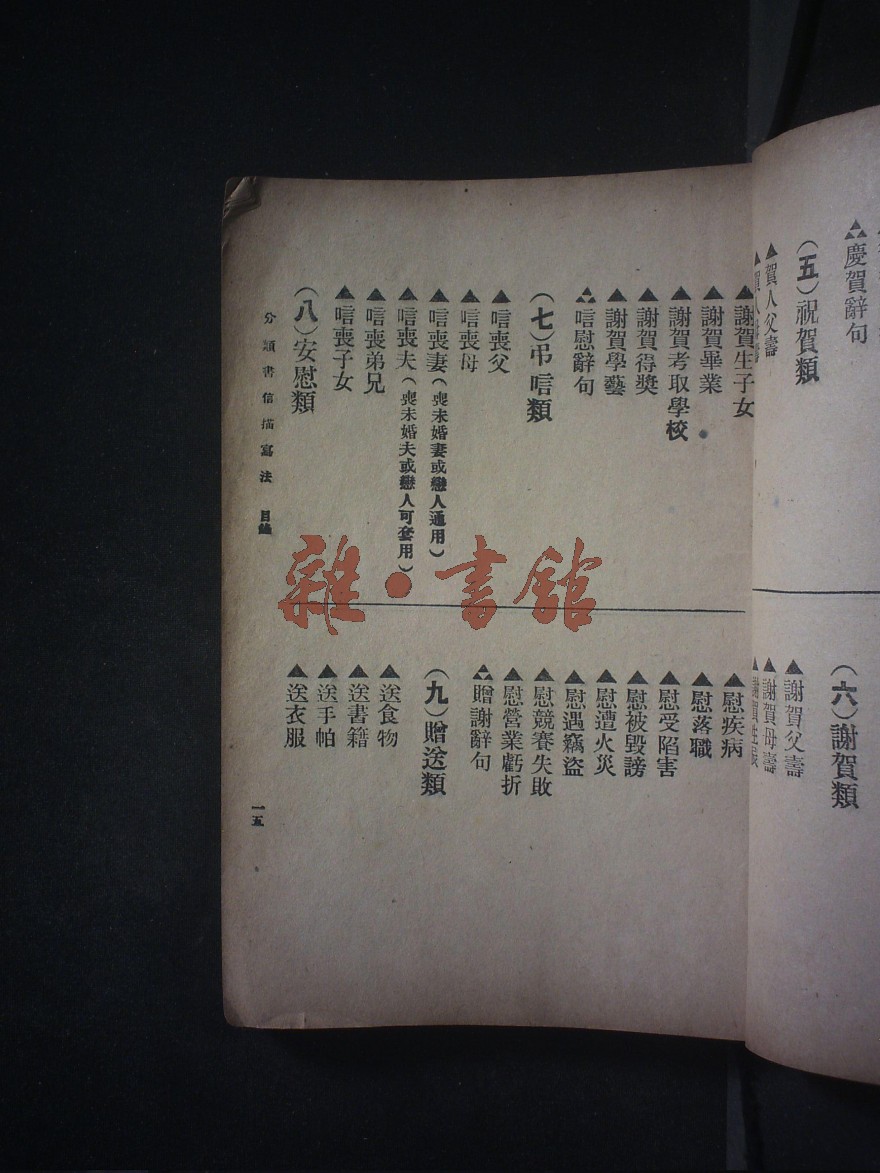 慶賀辭句
(五)祝賀類
▲賀人父壽
(六)謝賀類
▲謝賀父壽
▲謝賀母壽
▲謝賀生子女
▲謝賀畢業
▲謝賀考取學校
▲謝賀得獎
▲謝賀學藝
唁慰辭句
(七)弔唁類
▲唁喪父
▲唁喪母
▲唁喪妻(喪未婚妻或戀人通用)
▲唁喪夫(喪未婚夫或戀人可套用)
▲唁喪弟兄
▲唁喪子女
(八)安慰類
▲慰疾病
▲慰落職
▲慰受陷害
▲慰被毀謗
▲慰遭火災
▲慰遇竊盜
▲慰競賽失敗
▲慰營業虧折
贈謝辭句
(九)贈送類
▲送食物
▲送書籍
▲送手帕
▲送衣服
分類書信描寫法 目錄
一五
雜·書館